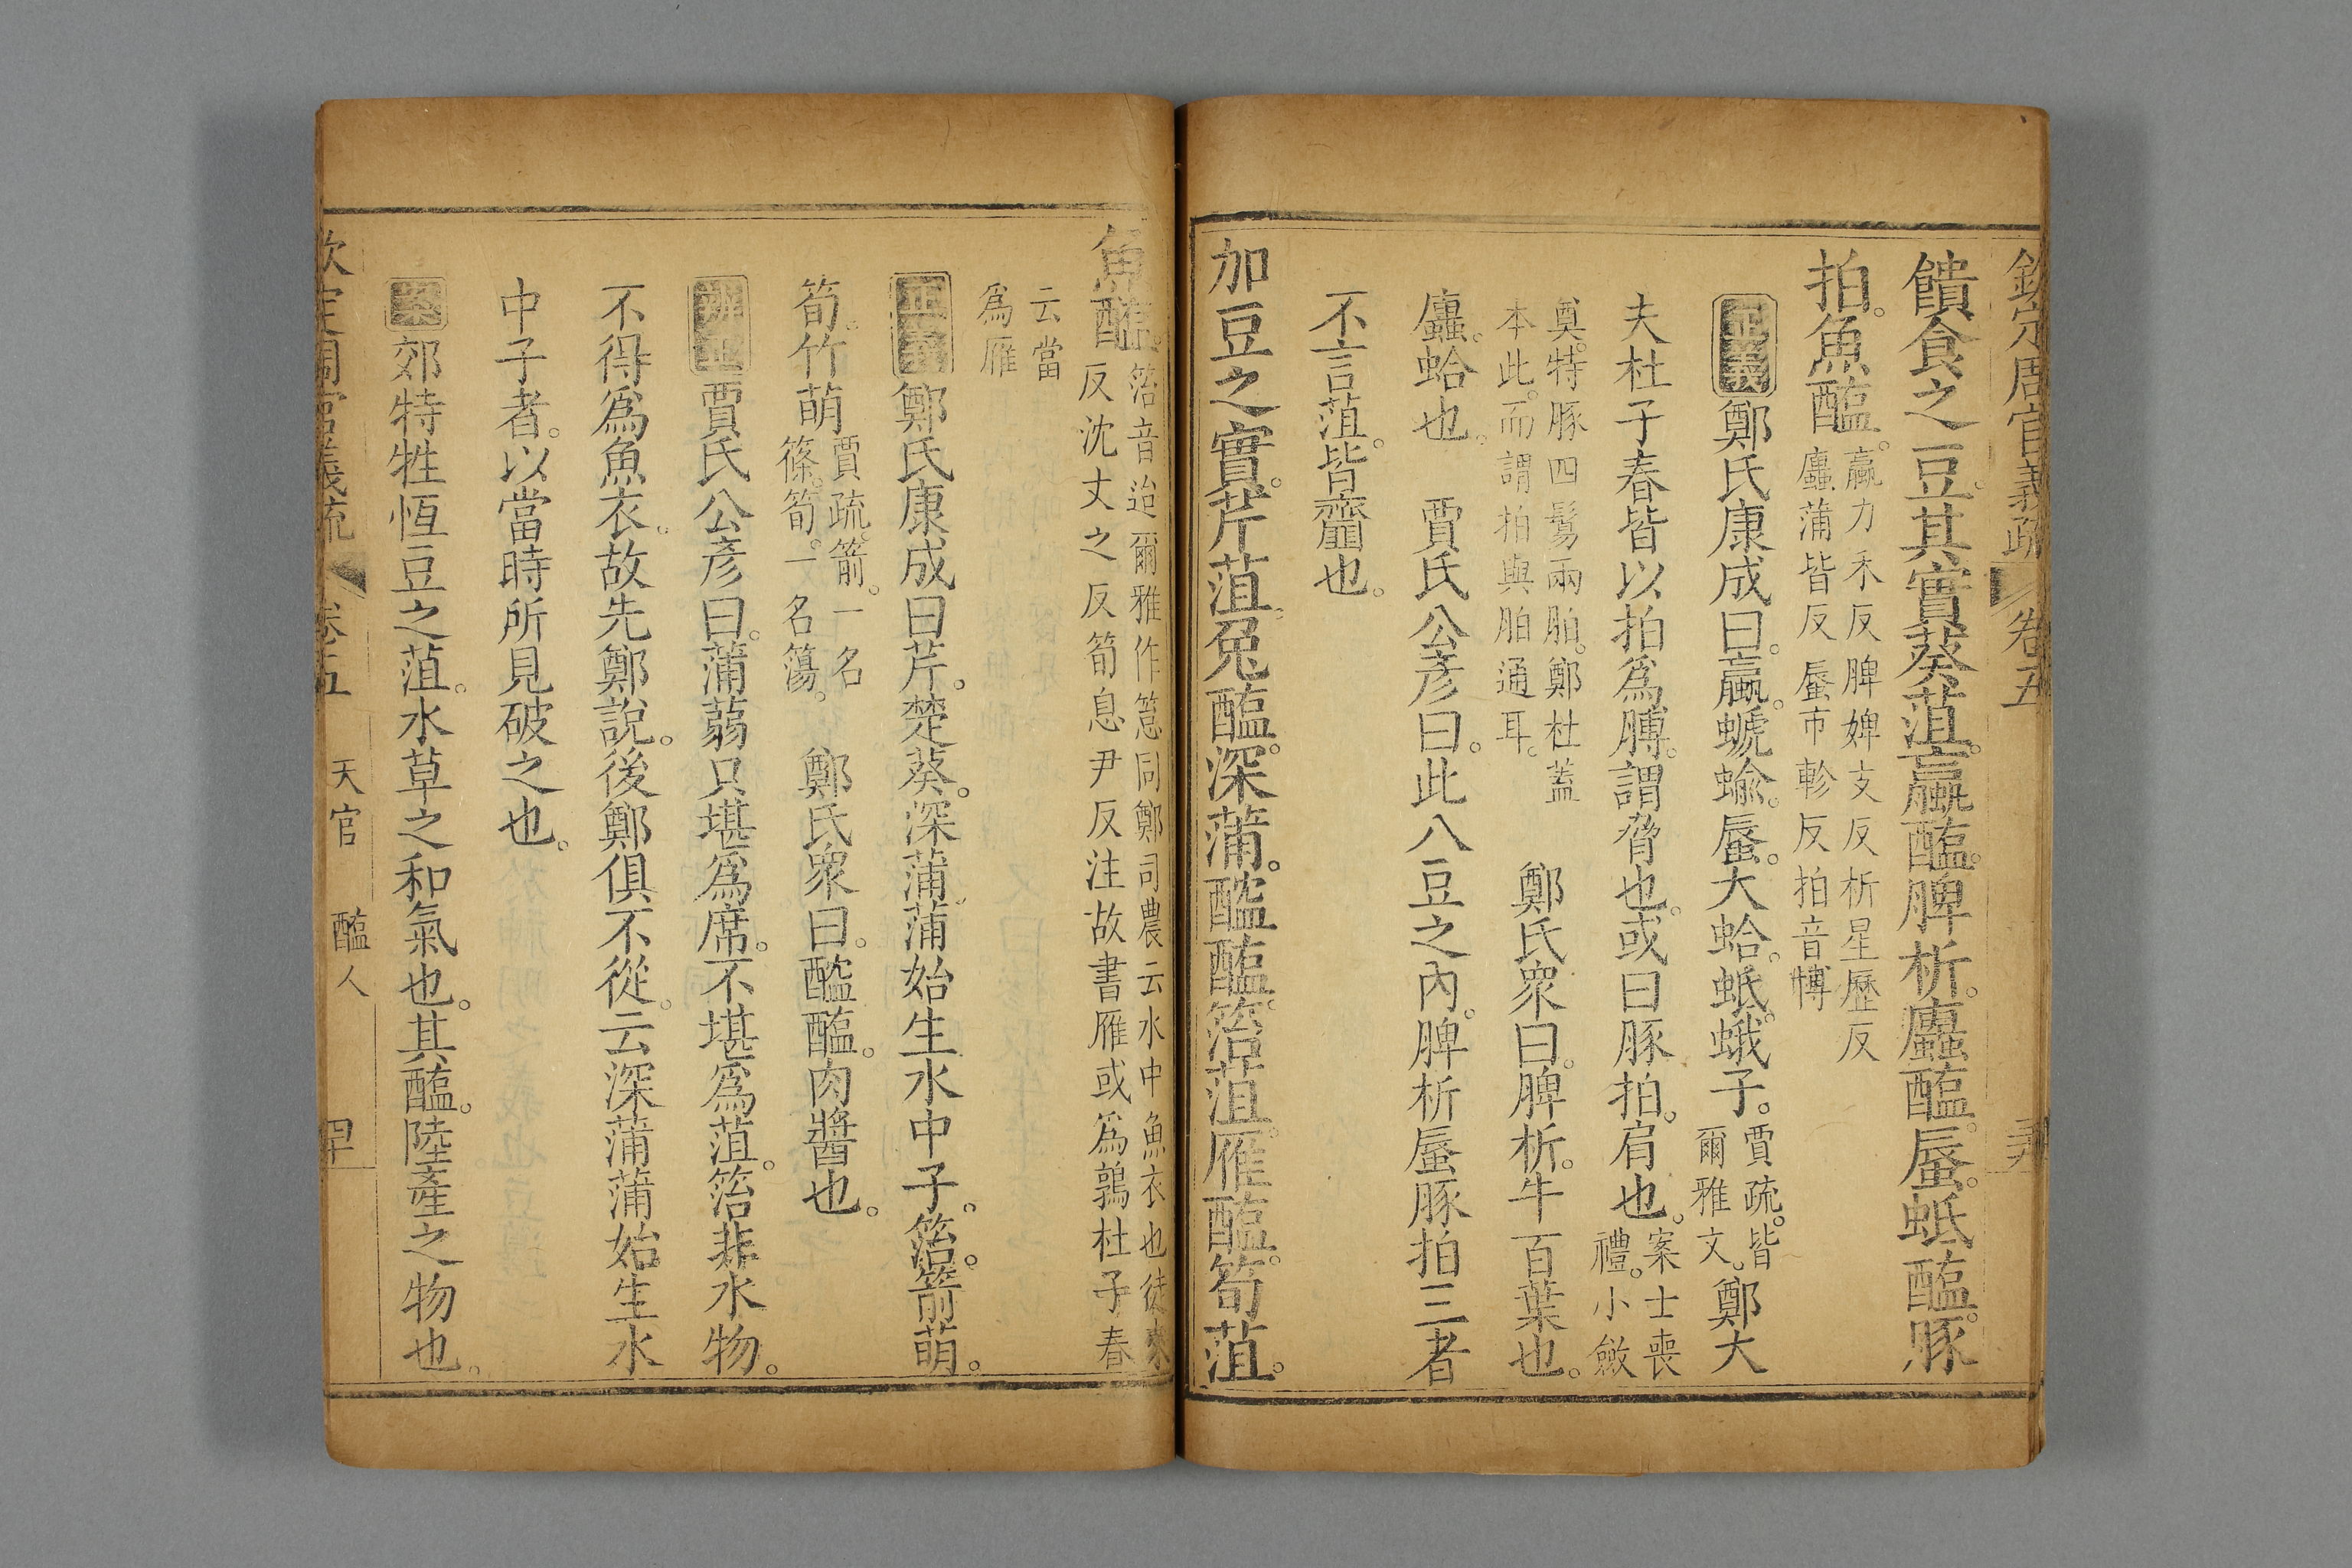 欽定周官義疏 卷五
饋食之豆其實葵菹蠃醢脾析蠯醢蜃蚳醢豚
拍魚醢
蠃力禾反脾婢支反析星歷反
蠯蒲皆反蜃市軫反拍音愽
正義鄭氏康成曰蠃螔蝓蜃大蛤蚳蛾子
賈疏皆
爾雅文
鄭大
夫杜子春皆以拍爲膊謂脅也或曰豚拍肩也
案士喪
禮小斂
奠特豚四鬄兩胉鄭杜蓋
本此而謂拍與胉通耳
鄭氏眾曰脾析牛百葉也
蠯蛤也 賈氏公彥曰此八豆之內脾析蜃豚拍三者
不言菹皆齏也
加豆之實芹菹兔醢深蒲醓醢箈菹雁醢筍菹
魚醢
箈音迨爾雅作䈚同鄭司農云水中魚衣也徒來
反沈丈之反筍息尹反注故書雁或爲鶉杜子春
云當
爲雁
正義鄭氏康成曰芹楚葵深蒲蒲始生水中子箈箭萌
筍竹萌
賈疏箭一名
篠筍一名簜
鄭氏眾曰醓醢肉醬也
辨正賈氏公彥曰蒲蒻只堪爲席不堪爲菹箈非水物
不得爲魚衣故先鄭說後鄭俱不從云深蒲蒲始生水
中子者以當時所見破之也
案郊特牲恆豆之菹水草之和氣也其醢陸產之物也
欽定周官義疏 卷五 天官 醢人